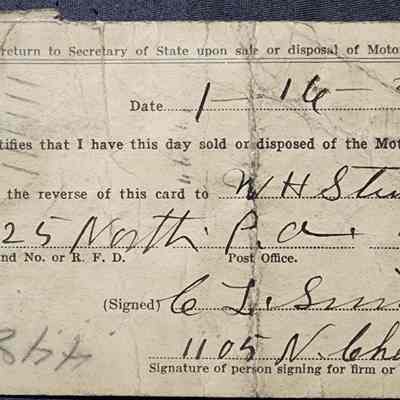 return to Secretary of State upon sale or disposal of Moto
Date 1-16-
tifies that I have this day sold or disposed of the Mot
the reverse of this card to W H St
25 North P.O.
nd No. or R. F. D. Post Office.
(Signed) C L. Smi
1105 N. Che
Signature of person signing for firm or